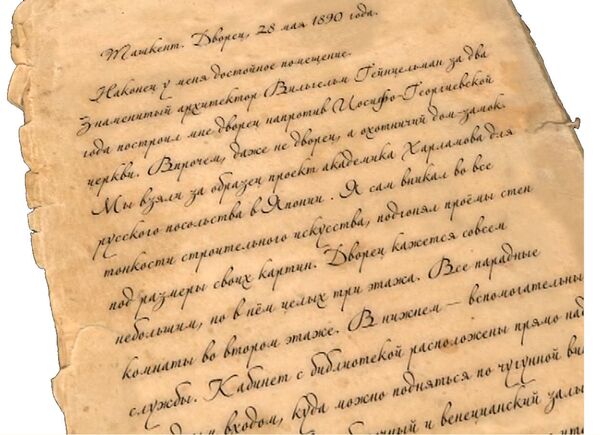 Ташкент. Дворец, 28 мая 1890 года.
Наконец у меня достойное помещение.
Знаменитый архитектор Вильгельм Гейнцельман за два
года построил мне дворец напротив Иосифо-Георгиевской
церкви. Впрочем, даже не дворец, а охотничий дом-замок.
Мы взяли за образец проект академика Харламова для
русского посольства в Японии. Я сам вникал во все
тонкости строительного искусства, подгонял проёмы стен
под размеры своих картин. Дворец кажется совсем
небольшим, но в нём целых три этажа. Все парадные
комнаты во втором этаже. В нижнем — вспомогательны
службы. Кабинет с библиотекой расположены прямо над
входом, куда можно подняться по чугунной ви
и венецианский залы